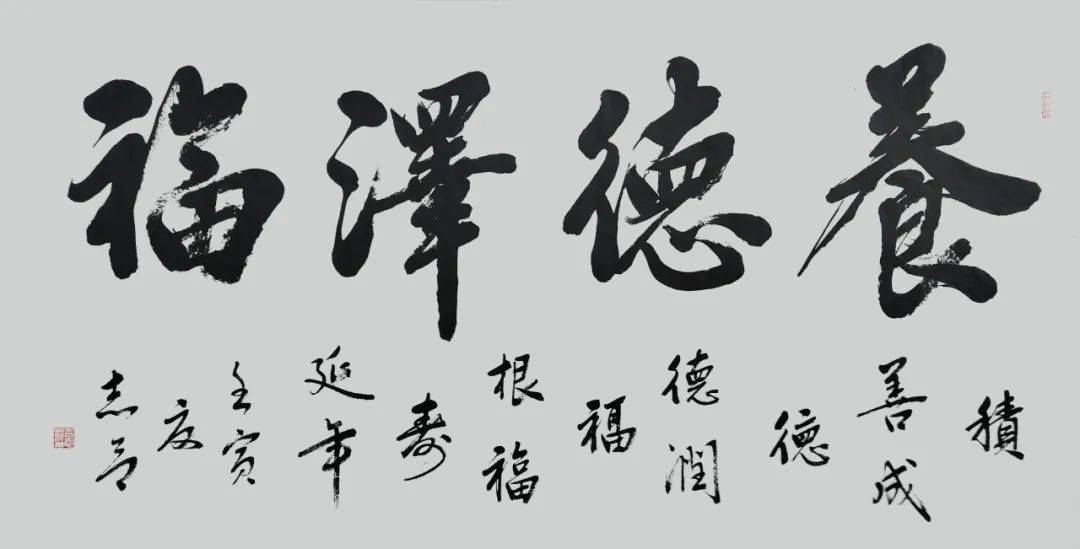 養德澤福
積
善成
德
德潤
福
根福
壽
延年
壬寅
夏
志